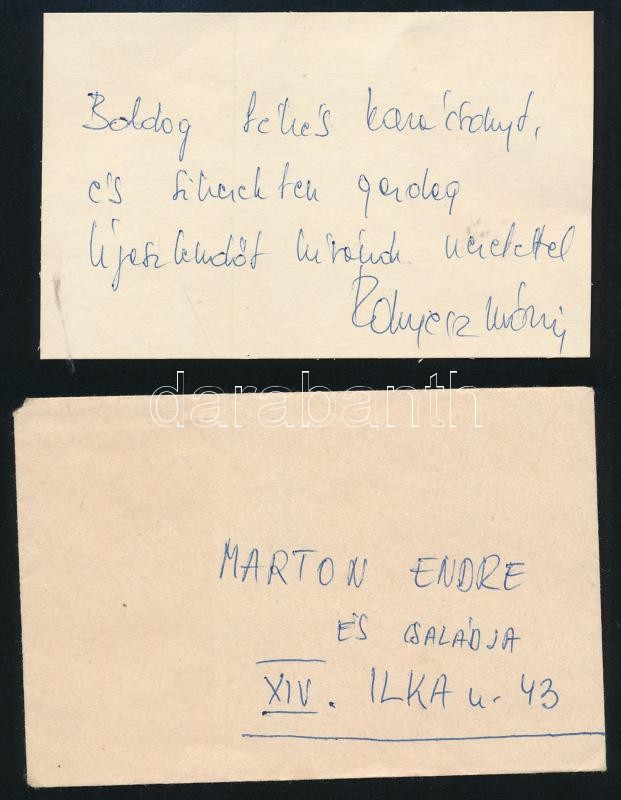 Boldog békés karácsonyt,
és sikerekben gazdag
újesztendőt kívánok szeretettel
darabanth
MARTON ENDRE
ÉS CSALÁDJA
XIV. ILKA u. 43